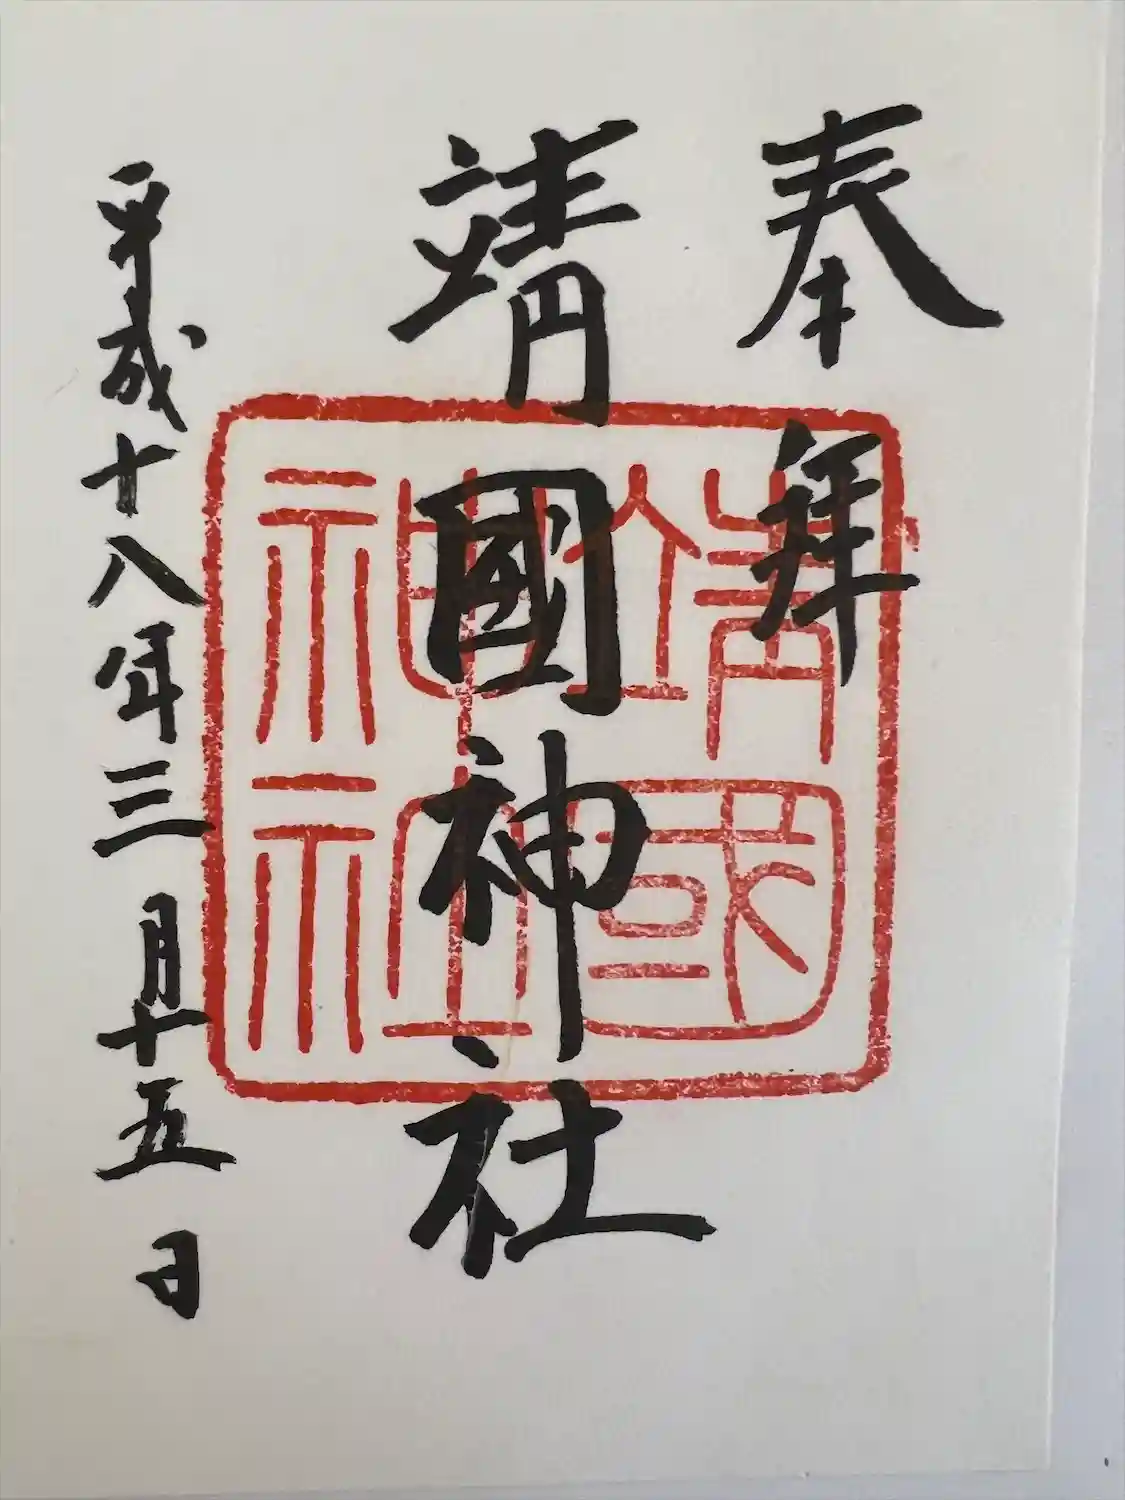 奉拜
靖國神社
平成十八年三月十五日
靖國
神社